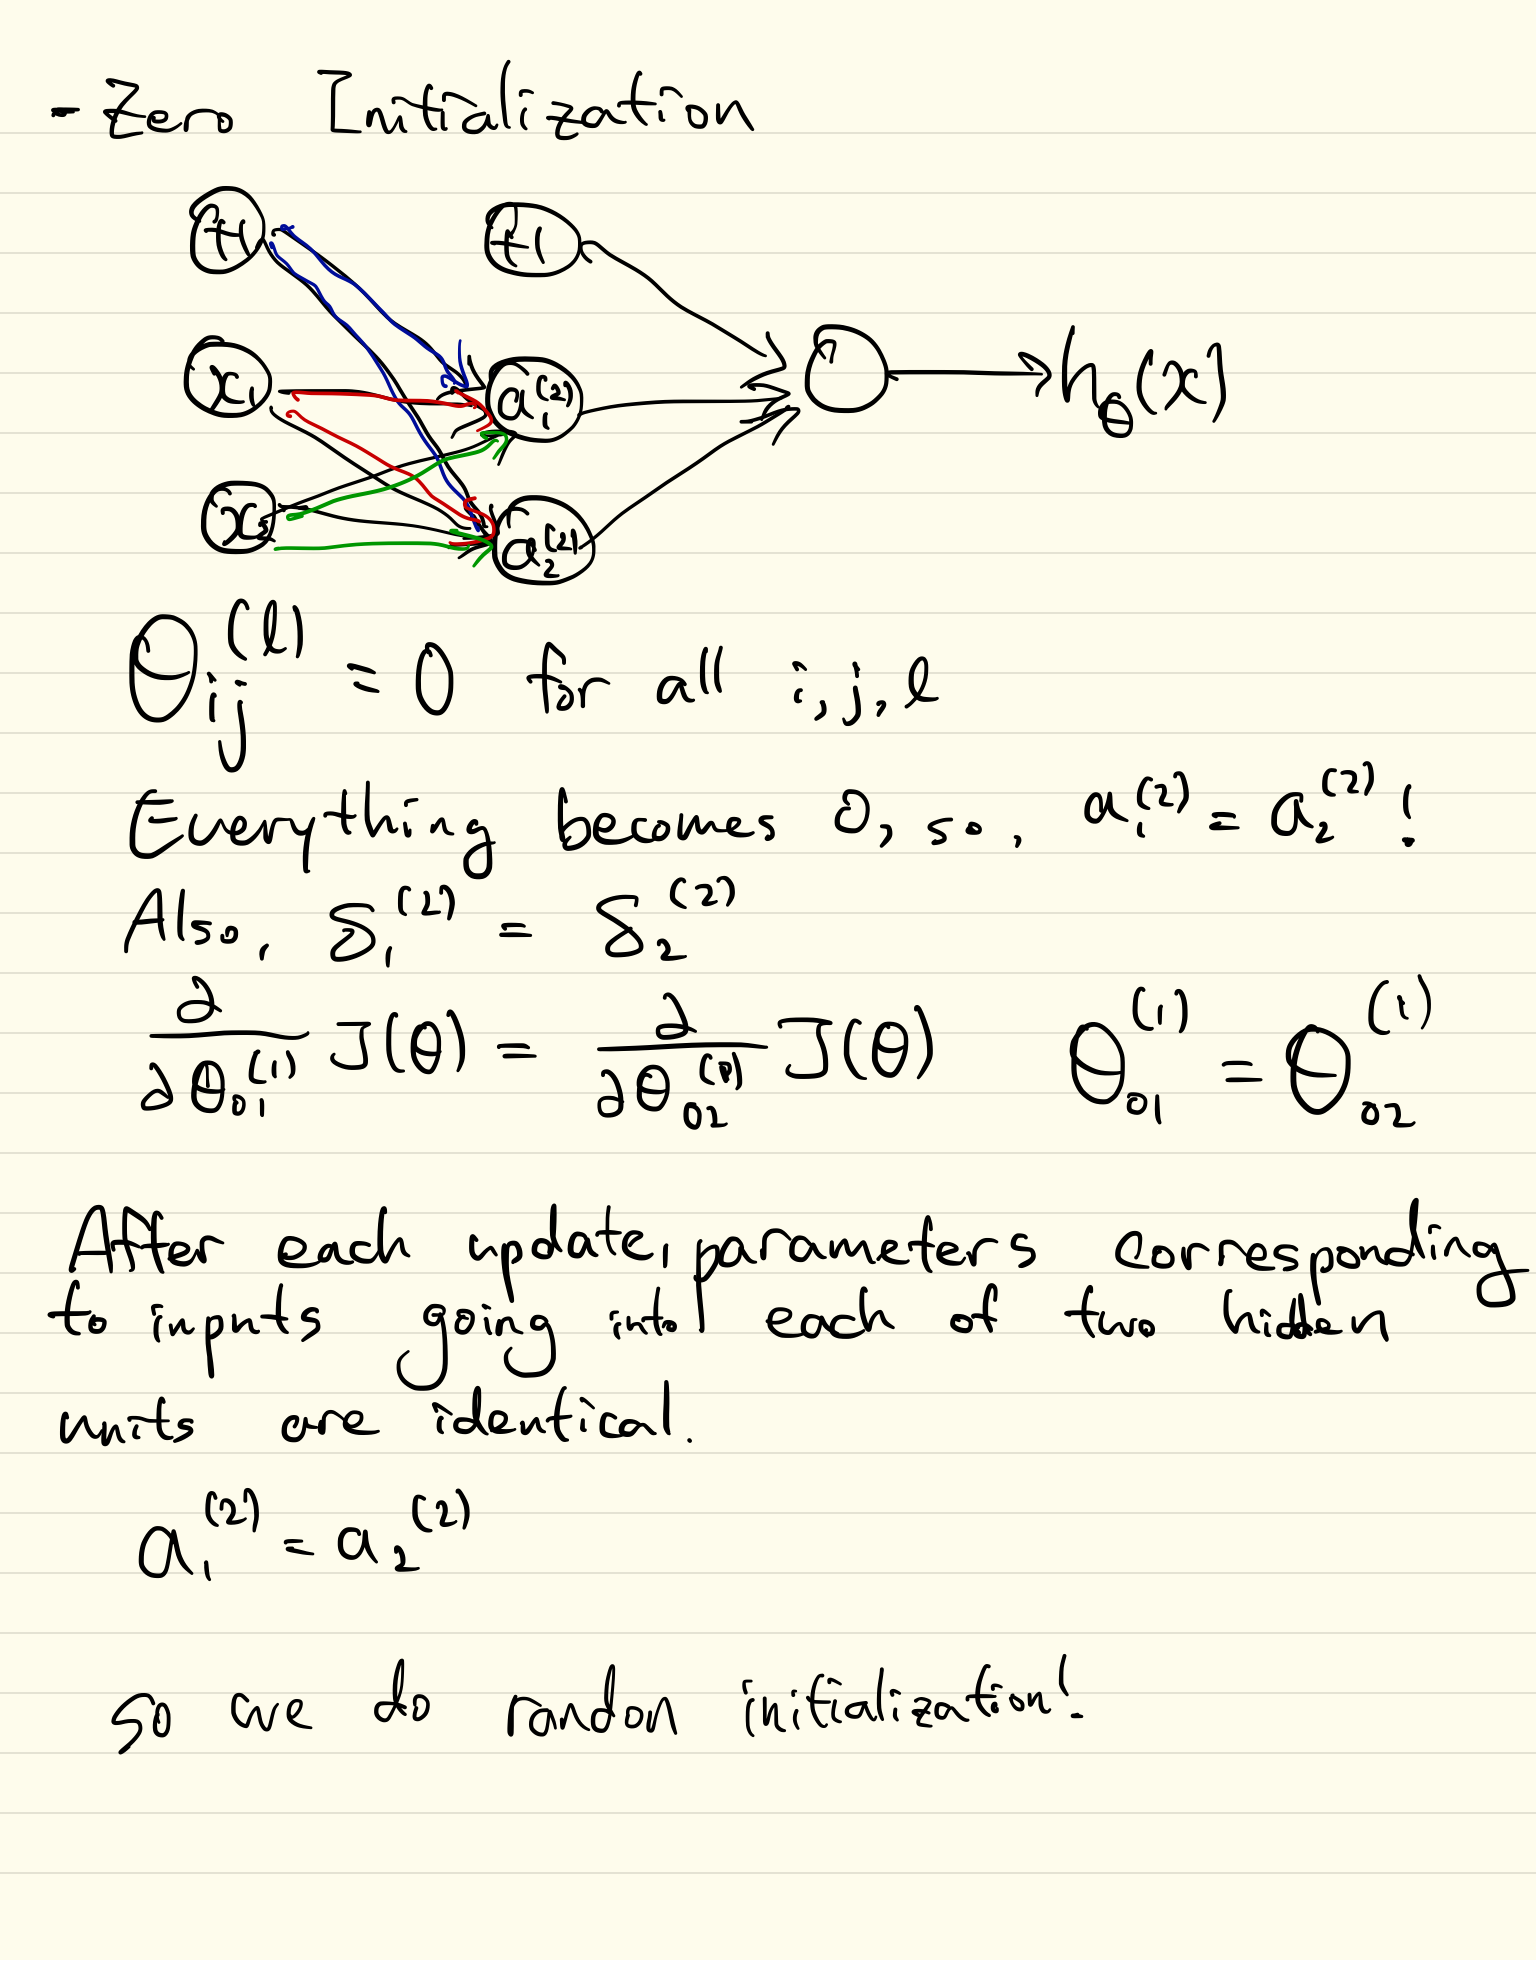 - Zero Initialization
+1 +1
x₁ a₁⁽²⁾ h_θ(x)
x₂ a₂⁽²⁾
θᵢⱼ⁽ˡ⁾ = 0 for all i, j, l
Everything becomes 0, so, a₁⁽²⁾ = a₂⁽²⁾!
Also, δ₁⁽²⁾ = δ₂⁽²⁾
∂/∂θ₀₁⁽¹⁾ J(θ) = ∂/∂θ₀₂⁽¹⁾ J(θ) θ₀₁⁽¹⁾ = θ₀₂⁽¹⁾
After each update, parameters corresponding
to inputs going into each of two hidden
units are identical.
a₁⁽²⁾ = a₂⁽²⁾
so we do random initialization!